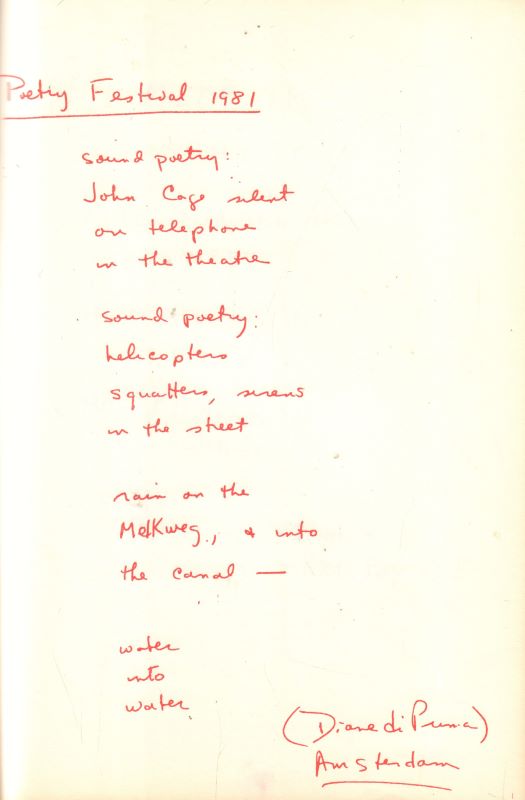 Poetry Festival 1981
sound poetry:
John Cage silent
on telephone
in the theatre
sound poetry:
helicopters
squatters, sirens
in the street
rain on the
Melkweg, & into
the canal —
water
into
water
(Diane di Prima)
Amsterdam